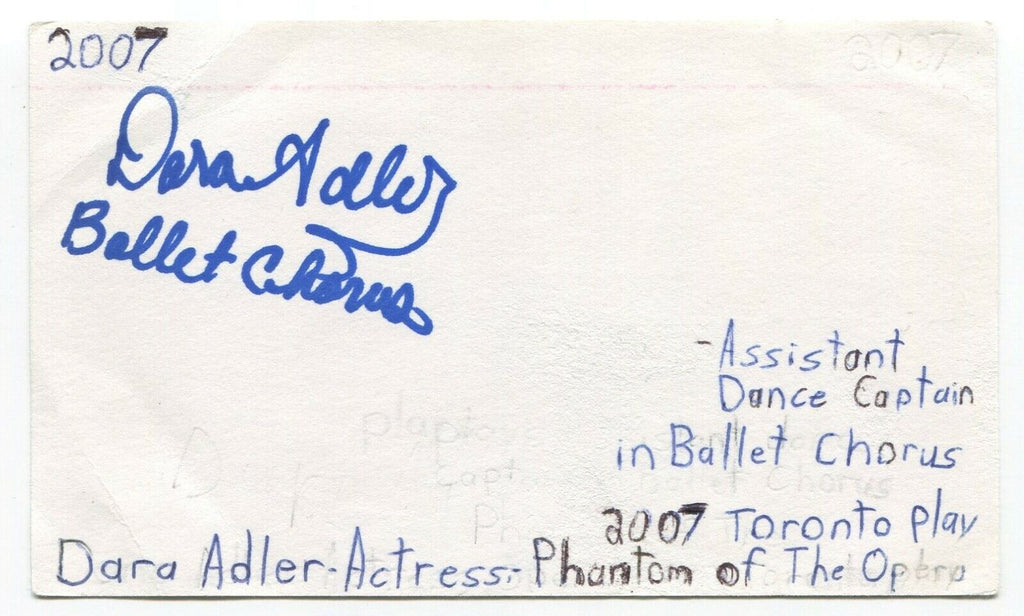 2007
Dara Adler
Ballet Chorus
-Assistant
Dance Captain
in Ballet Chorus
2007 Toronto play
Dara Adler-Actress-Phantom of The Opera